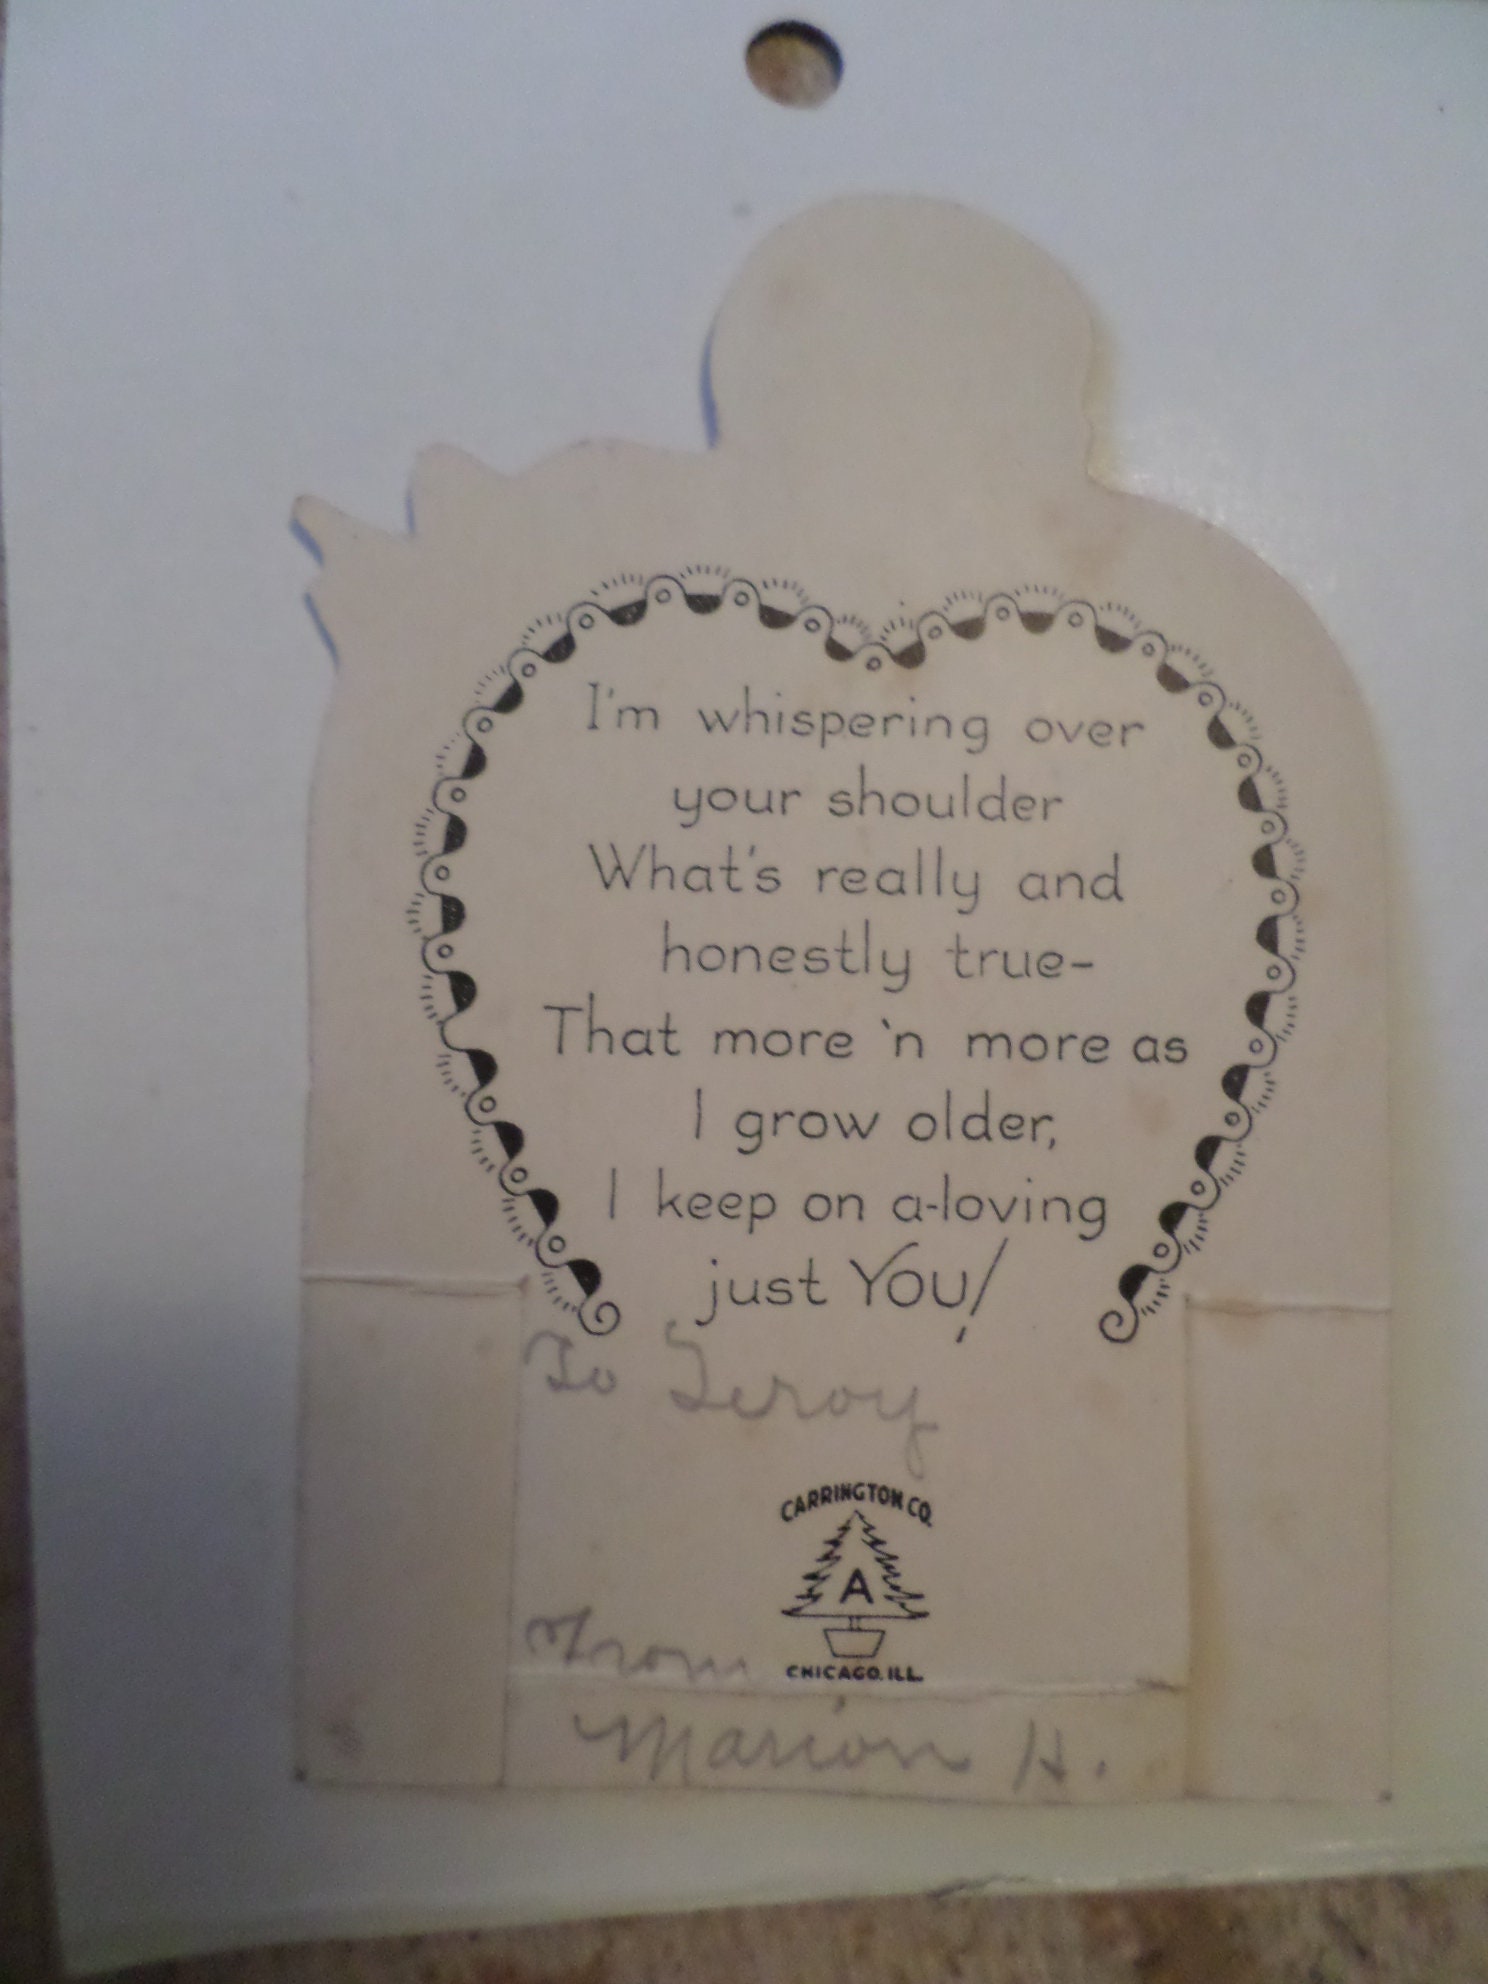 I'm whispering over
your shoulder
What's really and
honestly true-
That more 'n more as
I grow older,
I keep on a-loving
just YOU!
To Leroy
CARRINGTON CO.
A
CHICAGO. ILL.
From
Marion H.